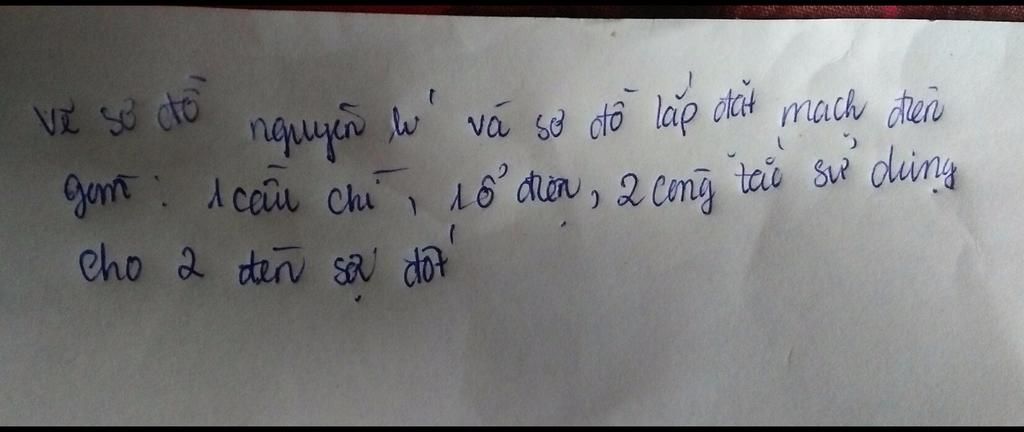 Vẽ sơ đồ nguyên lí và sơ đồ lắp đặt mạch điện
gồm: 1 cầu chì, 1 ổ điện, 2 công tắc sử dụng
cho 2 đèn sợi đốt